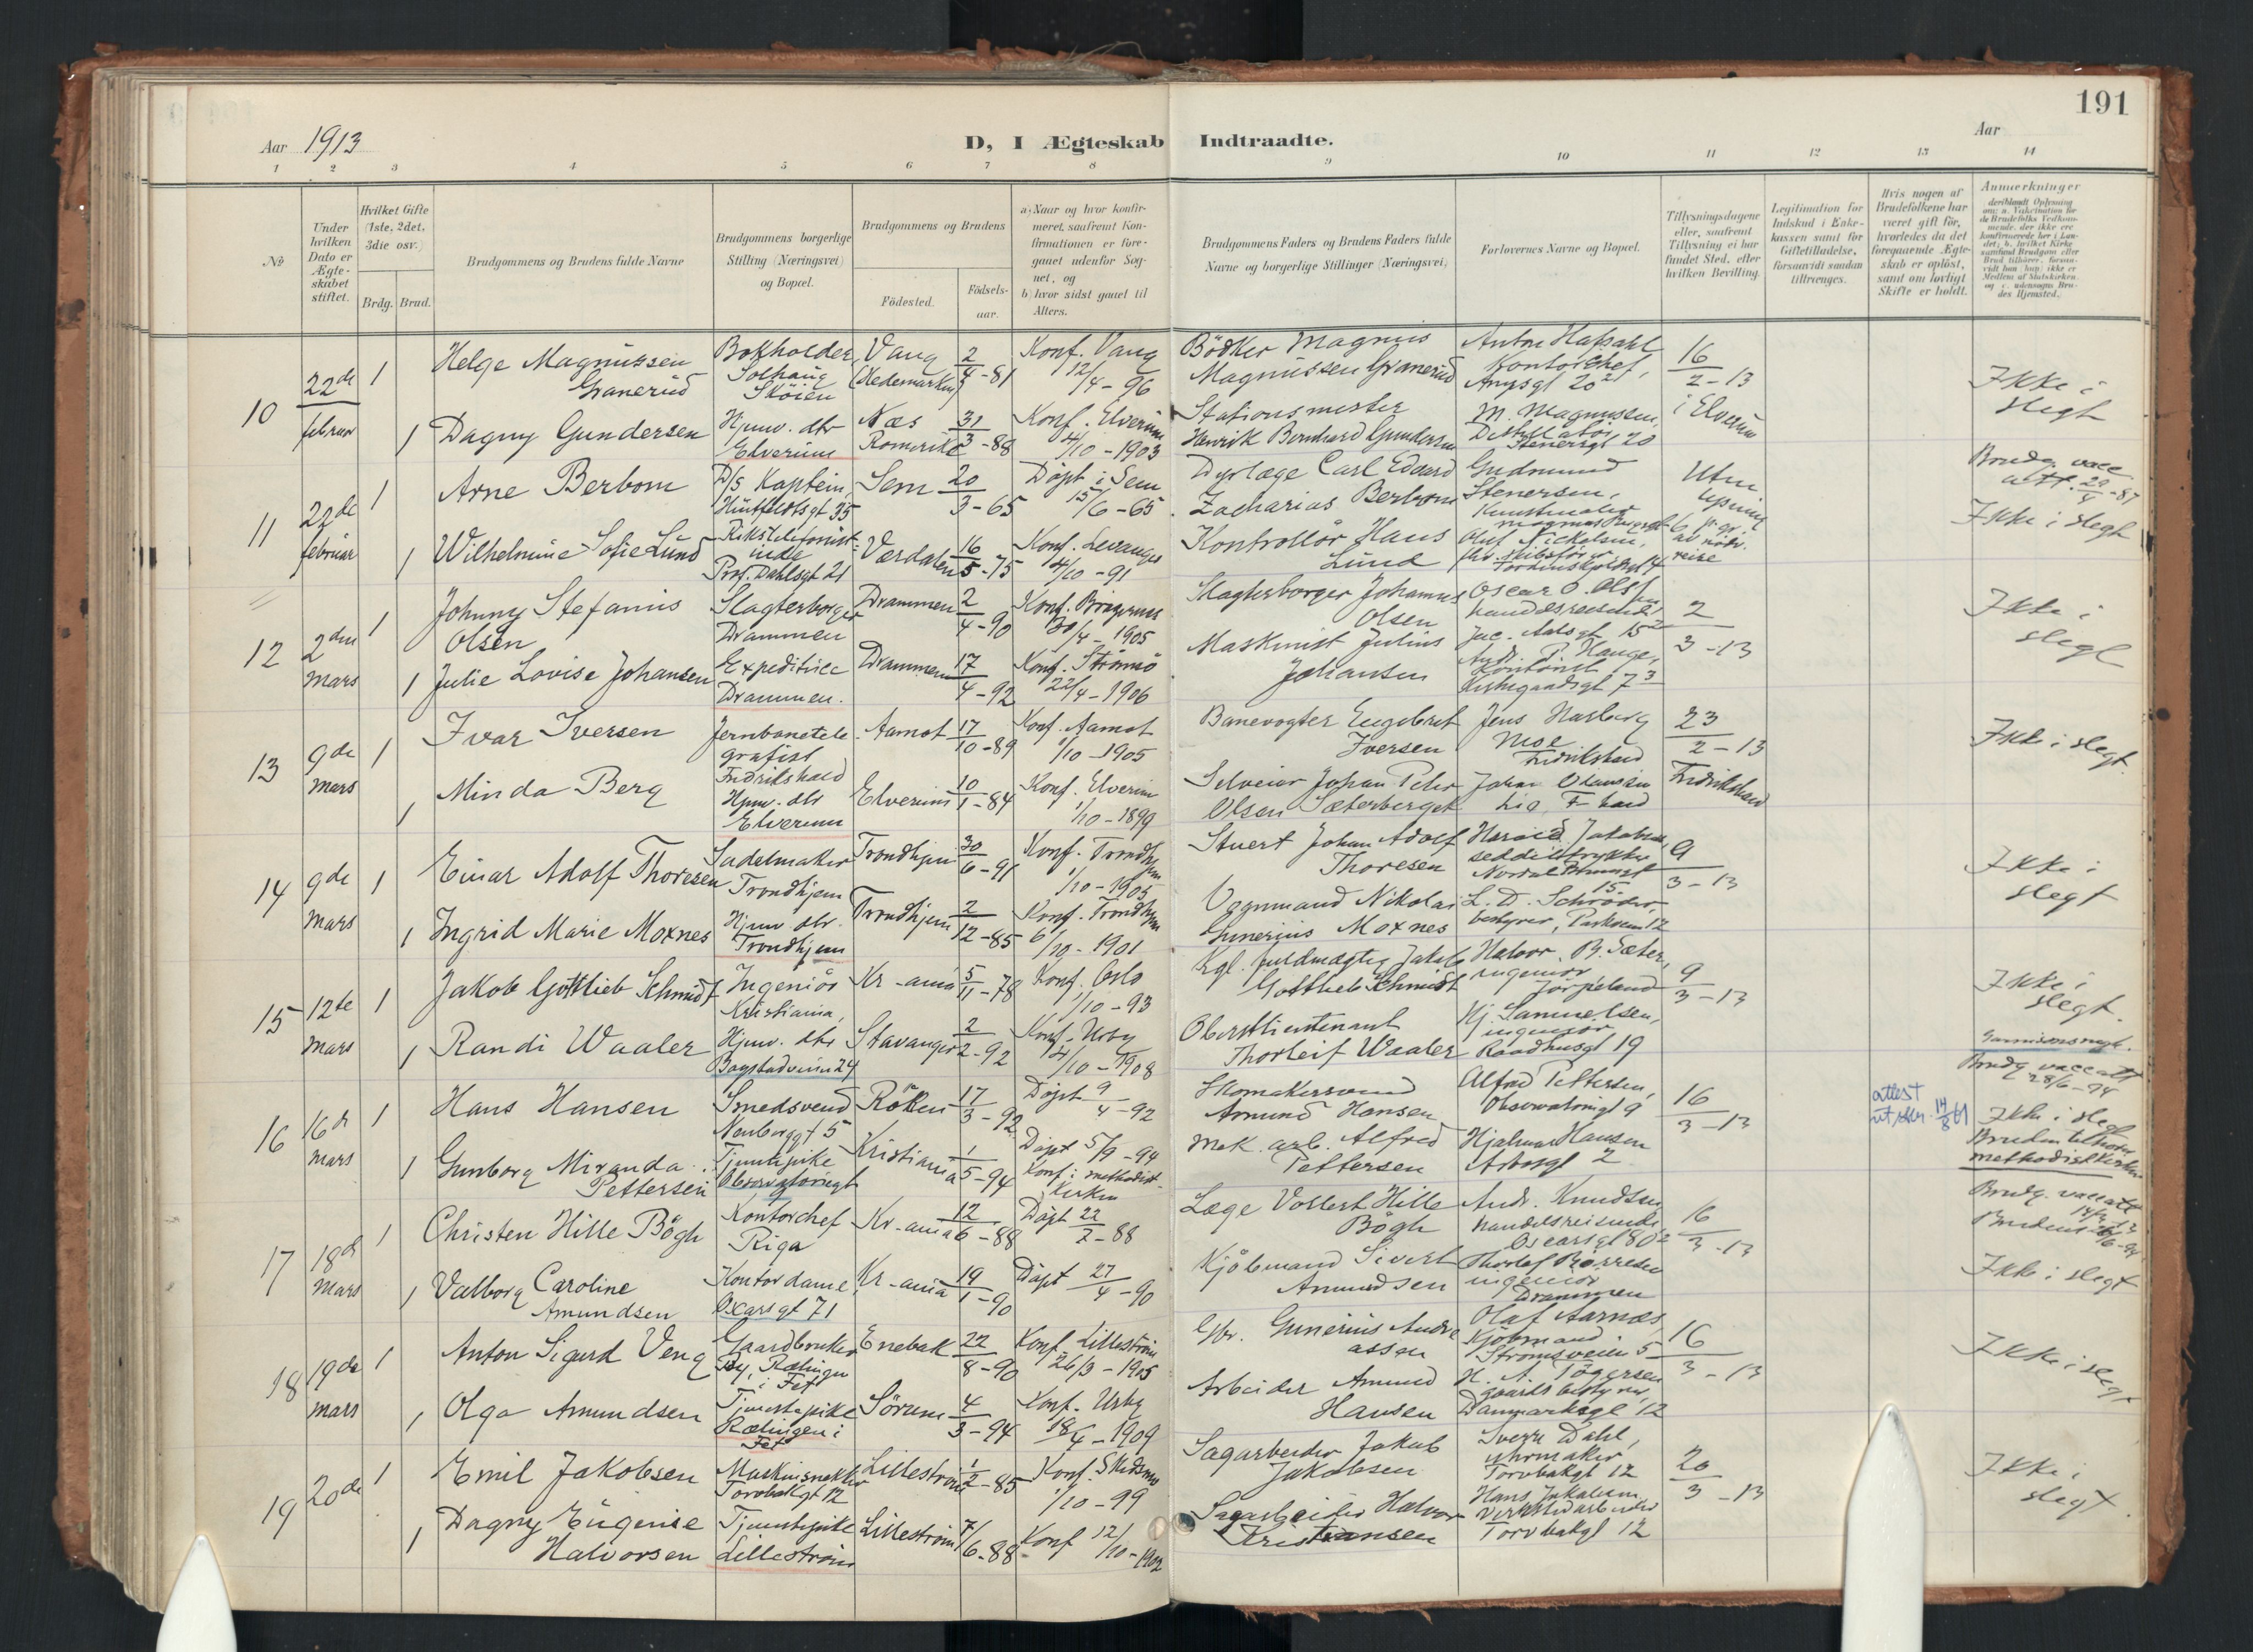 191
Aar 1913
D, I Ægteskab Indtraadte.
Aar
1 2 3 4 5 6 7 8 9 10 11 12 13 14
No
Under hvilken Dato er Ægteskabet stiftet.
Hvilket Gifte (1ste, 2det, 3die osv.)
Brdg. Brud.
Brudgommens og Brudens fulde Navne
Brudgommens borgerlige Stilling (Næringsvei) og Bopæl.
Brudgommens og Brudens
Fødested.
Fødselsaar.
a) Naar og hvor konfirmeret, saafremt Konfirmationen er foregaaet udenfor Sognet, og
b) hvor sidst gaaet til Alters.
Brudgommens Faders og Brudens Faders fulde Navne og borgerlige Stillinger (Næringsvei)
Forlovernes Navne og Bopæl.
Tillysningsdagene eller, saafremt Tillysning ei har fundet Sted, efter hvilken Bevilling.
Legitimation for Indskud i Enkekassen samt for Giftetilladelse, forsaavidt saadan tiltrænges.
Hvis nogen af Brudefolkene har været gift før, hvorledes da det foregaaende Ægteskab er opløst, samt om lovligt Skifte er holdt.
Anmærkninger
10
22de februar
1
Helge Magnussen Granerud
Bokholder Solhaug Skøien
Vang (Hedemarken)
2/4-81
Konf. Vang 12/4-96
Bödker Magnus Magnussen Granerud
Kontorchef,
16/2-13 i Elverum
Ikke i slegt
1
Dagny Gundersen
Hjemv. dtr Elverum
Næs Romerike
31/3-88
Konf. Elverum 4/10-1903
Stationsmester Henrik Bernhard Gundersen
M. Magnussen, Stenersgt 20
11
22de februar
1
Arne Berbom
D/s Kaptein, Huitfeldtsgt 35
Sem
20/3-65
Döpt i Sem 15/6-65
Dyrlæge Carl Edvard Zacharias Berbom
Gudmund Stenersen, Kunstmaler
Brudg. vacc
Ikke i slegt
1
Wilhelmine Sofie Lund
Rikstelefonistinde Prof. Dahlsgt 21
Værdalen
16/5-75
Konf. Levanger 4/10-91
Kontrollör Hans Lund
12
2den Mars
1
Johnny Stefanus Olsen
Slagterborger Drammen
Drammen
2/4-90
Konf. Bragernes 30/4-1905
Slagterborger Johannes Olsen
Oscar O. Olsen handelsreisende, Jac. Aalsgt 15
2/3-13
Ikke i slegt
1
Julie Lovise Johansen
Expeditrice Drammen.
Drammen
17/4-92
Konf. Strömsö 22/4-1906
Maskinist Julius Johansen
Andr. P. Hauge, Kontorist Kirkegaardsgt 7
13
9de Mars
1
Ivar Iversen
Jernbanetelegrafist Fredrikshald
Aamot
17/10-89
Konf. Aamot 1/10-1905
Banevogter Engebret Iversen
Jens Hasberg Moe Fredrikshald
23/2-13 Fredrikshald
Ikke i slegt.
1
Minda Berg
Hjmv. dtr Elverum
Elverum
10/1-84
Konf. Elverum 1/10-1899
Selveier Johan Peter Olsen Sæterberget
14
9de Mars
1
Einar Adolf Thoresen
Sadelmaker Trondhjem
Trondhjem
30/6-91
Konf. Trondhjem 1/10-1905
Stuert Johan Adolf Thoresen
Harald Jakobsen
9/3-13
Ikke i slegt
1
Ingrid Marie Moxnes
Hjmv dtr. Trondhjem
Trondhjem
2/12-85
Konf. Trondhjem 6/10-1901
Vognmand Nikolai Gunerius Moxnes
L. D. Schröder, bestyrer, Parkveien 12
15
12te Mars
1
Jakob Gottlieb Schmidt
Ingeniör Kristiania,
Kr-ania
5/11-78
Konf. Oslo 1/10-93
Kgl. fuldmægtig Jakob Gottlieb Schmidt
Halvor B. Sæter, ingeniör, Jørpeland
9/3-13
Ikke i slegt.
1
Randi Waaler
Hjmv. dtr Bogstadveien 24
Stavanger
2/2-92
Konf. Urby 4/10-1908
Oberstlieutenant Thorleif Waaler
Hj. Samuelsen, ingeniör Raadhusgt 19
Garnisonsmgh.
16
16de Mars
1
Hans Hansen
Smedsvend Neubergsgt 5
Röken
17/3-92
Döpt 9/4-92
Skomakersvend Amund Hansen
Alfred Pettersen, Observatoriegt 9
16/3-13
attest
Brudg vacc att 28/6-94
Ikke i slegt
Bruden tilhører methodistkirken
1
Gunborg Miranda Pettersen
Tjenstepike Observatoriegt
Kristiania
1/5-94
Döpt 5/9-94 Konf. i methodistkirken
Mek. arb. Alfred Pettersen
Hjalmar Hansen
17
18de Mars
1
Christen Hille Bögh
Kontorchef Riga
Kr-ania
12/6-88
Döpt 22/7-88
Læge Vollert Hille Bögh
Andr. Knudsen handelsreisende, Oscarsgt 80
16/3-13
Brudg. vacc att
Ikke i slegt
1
Valborg Caroline Amundsen
Kontordame, Oscarsgt 71
Kr-ania
19/1-90
Döpt 27/4-90
Kjöbmand Sivert Amundsen
Thorlof Börresen ingeniör Drammen
18
19de Mars
1
Anton Sigurd Veng
Gaardbruker By, Rælingen i Fet
Enebak
22/8-90
Konf. Lilleström 26/3-1905
Gbr. Gunerius Andreassen
Olaf Aarnæs, Kjöbmand Strömsveien 5
16/3-13
Ikke i slegt
1
Olga Amundsen
Tjenstepike Rælingen i Fet
Sörum
4/3-94
Konf. Urby 18/4-1909
Arbeider Amund Hansen
H. A. Tögersen gaardsbestyrer, Danmarksgt 12
19
20de
1
Emil Jakobsen
Maskinsnekker Torvbakgt 12
Lilleström
1/2-85
Konf. Skedsmo 1/10-99
Sagarbeider Jakob Jakobsen
Sverre Dahl, uhrmaker Torvbakgt 12
20/3-13
Ikke i slegt.
1
Dagny Eugenie Halvorsen
Tjenstepike Lilleström
Lilleström
7/6-88
Konf 12/10-1902
Sagarbeider Halvor Kristiansen
Hans Jakobsen Verkstedarbeider Torvbakgt 12